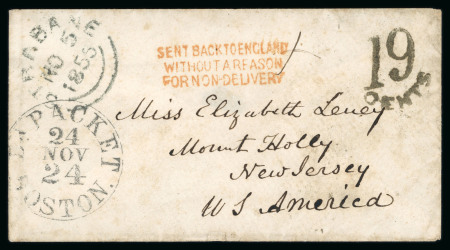 NO 5
1855
SENT BACK TO ENGLAND
WITHOUT A REASON
FOR NON-DELIVERY
19
CENTS
PACKET
24
NOV
24
BOSTON
Miss Elizabeth Leney
Mount Holly
New Jersey
US America